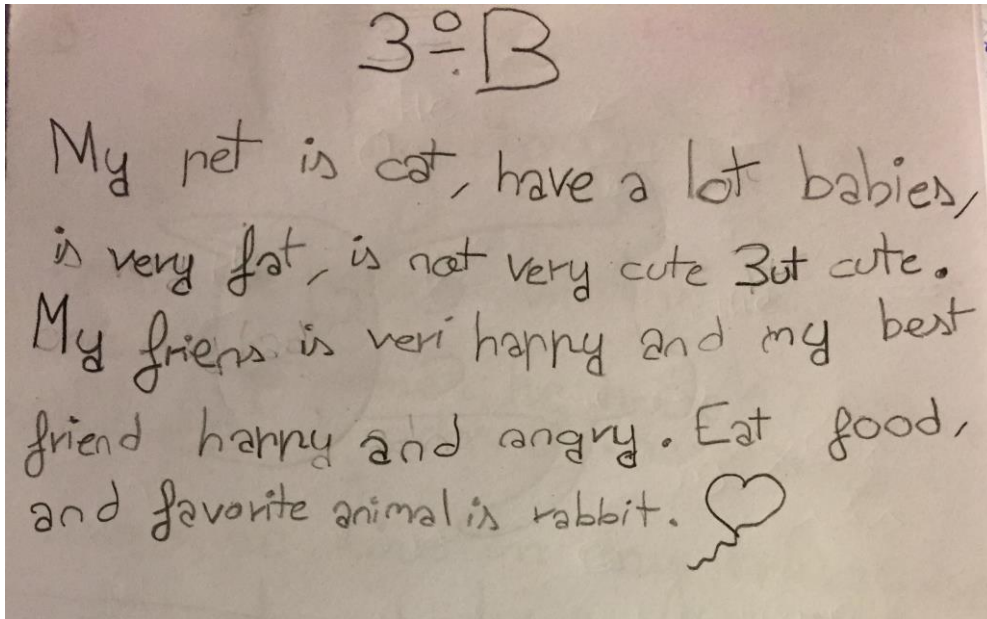 3º B
My pet is cat, have a lot babies,
is very fat, is not very cute But cute.
My friens is veri happy and my best
friend happy and angry. Eat food,
and favorite animal is rabbit.